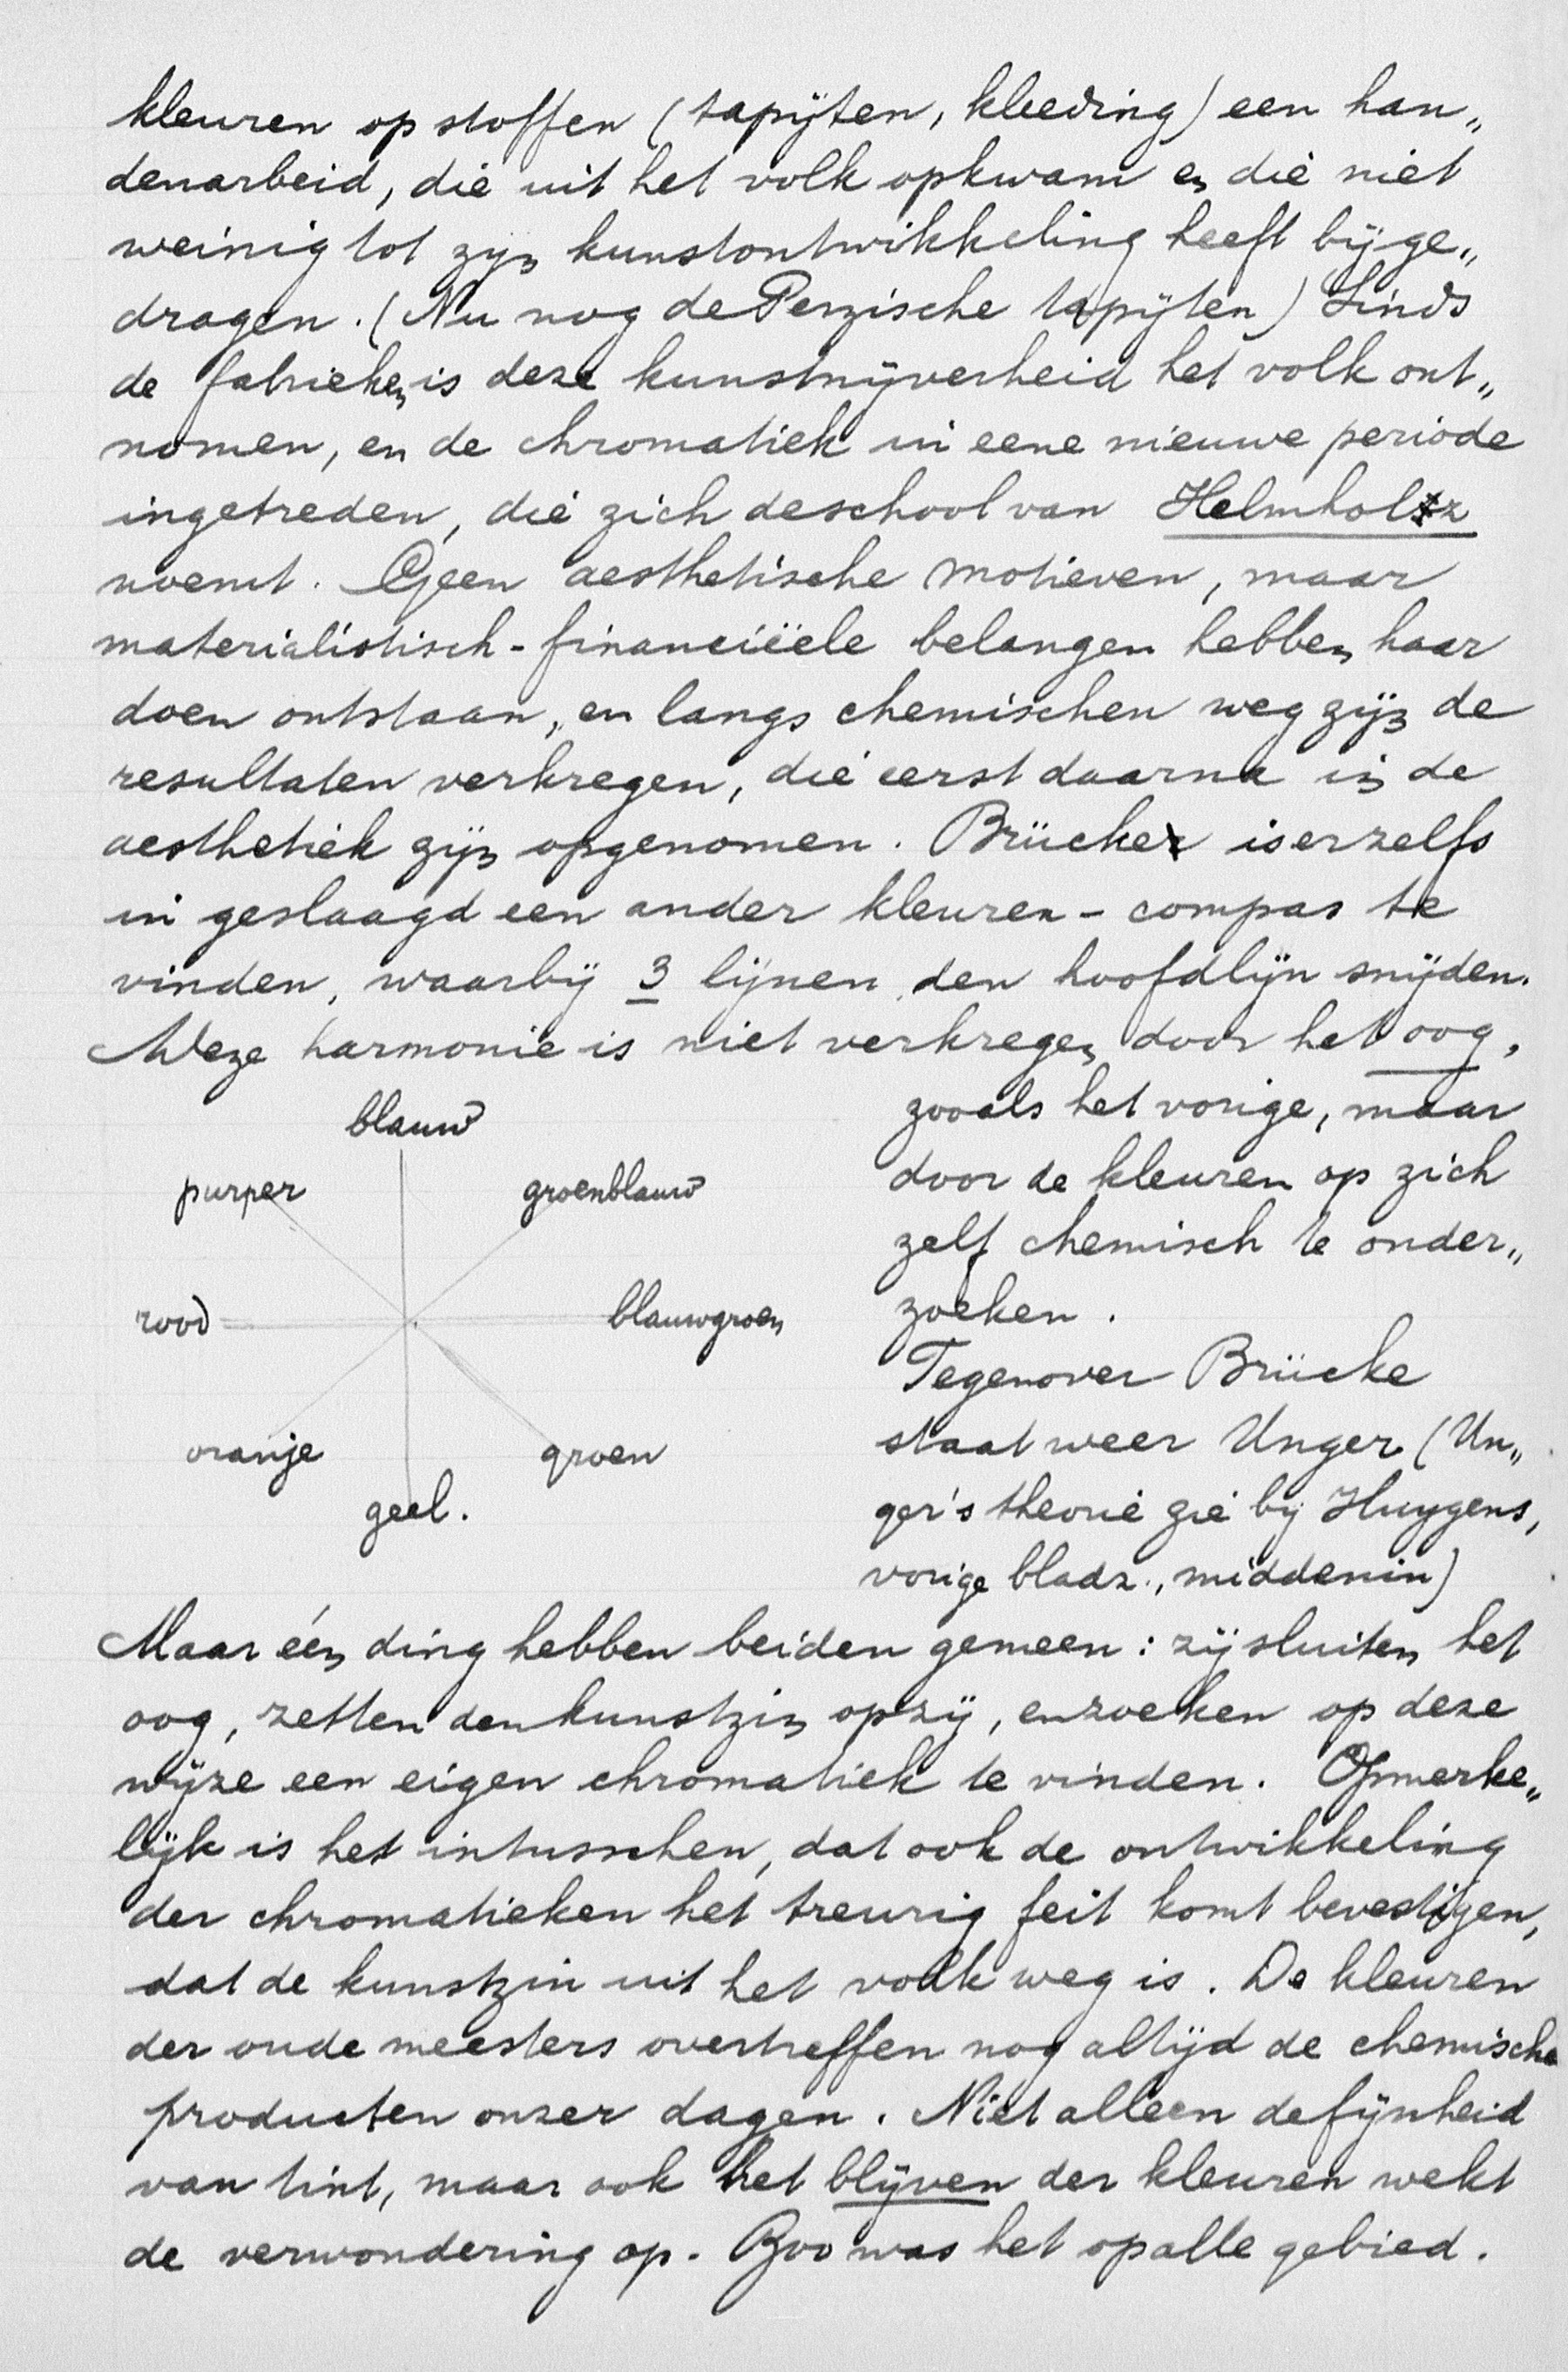 kleuren op stoffen (tapijten, kleeding) een han„
denarbeid, die uit het volk opkwam en die niet
weinig tot zijn kunstontwikkeling heeft bijge„
dragen. (Nu nog de Perzische tapijten) Sinds
de fabrieken is deze kunstnijverheid het volk ont„
nomen, en de chromatiek in eene nieuwe periode
ingetreden, die zich de school van Helmholtz
noemt. Geen aesthetische motieven, maar
materialistisch-financiëele belangen hebben haar
doen ontstaan, en langs chemischen weg zijn de
resultaten verkregen, die eerst daarna in de
aesthetiek zijn opgenomen. Brücke is er zelfs
in geslaagd een ander kleuren-compas te
vinden, waarbij 3 lijnen den hoofdlijn snijden.
Deze harmonie is niet verkregen door het oog,
zooals het vorige, maar
door de kleuren op zich
zelf chemisch te onder„
zoeken.
Tegenover Brücke
staat weer Unger (Un„
ger's theorie zie bij Huygens,
vorige bladz., middenin)
blauw
purper groenblauw
rood blauwgroen
oranje groen
geel.
Maar één ding hebben beiden gemeen: zij sluiten het
oog, zetten den kunstzin opzij, en zoeken op deze
wijze een eigen chromatiek te vinden. Opmerke„
lijk is het intusschen, dat ook de ontwikkeling
der chromatieken het treurig feit komt bevestigen,
dat de kunstzin uit het volk weg is. De kleuren
der oude meesters overtreffen nog altijd de chemische
producten onzer dagen. Niet alleen de fijnheid
van tint, maar ook het blijven der kleuren wekt
de verwondering op. Zoo was het op alle gebied.